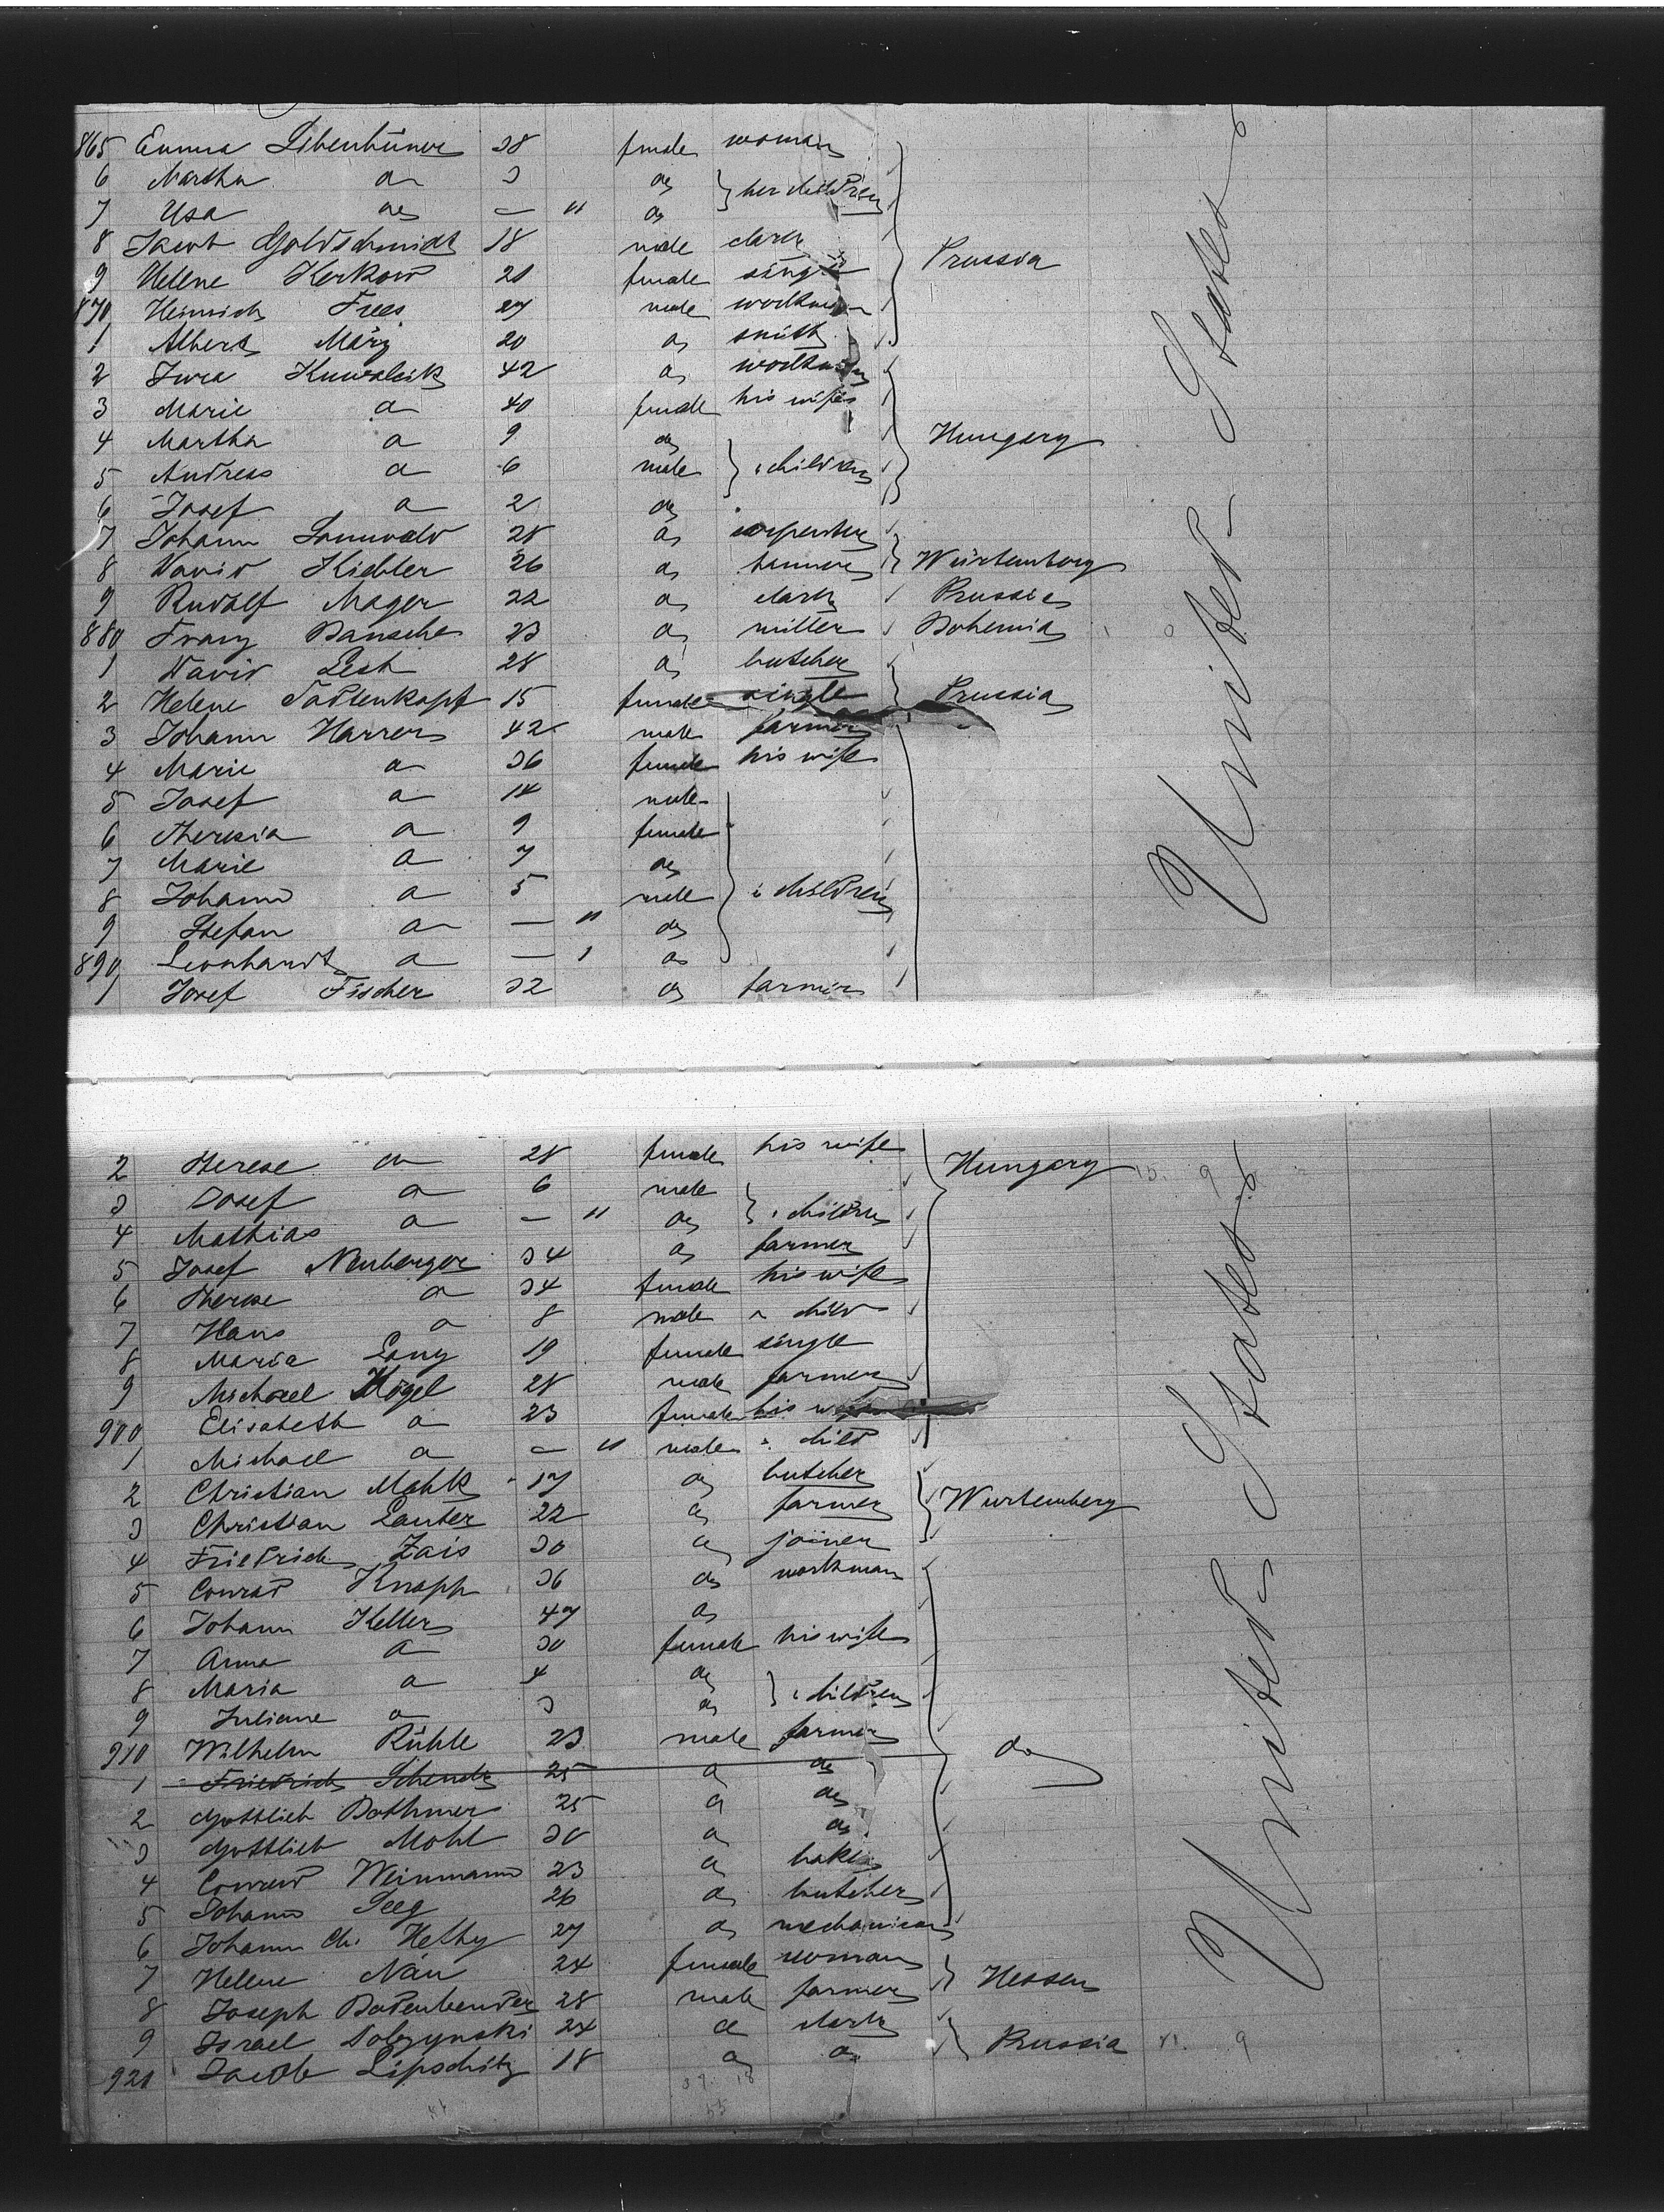 865 Emma Libenhüner 38 female woman
6 Martha do 3 do } her children
7 Usa do — " do
8 Jacob Goldschmidt 18 male clark
9 Helene Kerkow 20 female single Prussia
870 Heinrich Frees 27 male workman
1 Albert März 20 do smith
2 Jura Kuwalcik 42 do workman
3 Marie do 40 female his wife
4 Martha do 9 do Hungary
5 Andreas do 6 male } children
6 Josef do 2 do
7 Johann 28 do carpenter
8 David Kiebler 26 do Würtemberg
9 Rudolf Mager 22 do clark Prussia
880 Franz 23 do miller Bohemia
1 David Lesh 28 do butcher
2 Helene Todtenkopf 15 female single Prussia
3 Johann Harrer 42 male farmer
4 Marie do 36 female his wife
5 Josef do 14 male
6 Theresia do 9 female
7 Marie do 7 do
8 Johann do 5 male } children
9 Stefan do — " do
890 Leonhardt do — do
1 Josef Fischer 32 do farmer
United States
2 Therese do 28 female his wife Hungary
3 Josef do 6 male
4 Mathias do — " do } children
5 Josef Neuberger 34 do farmer
6 Therese do 34 female his wife
7 Hans do 8 male " child
8 Maria Lang 19 female single
9 Michael Kögel 28 male farmer
900 Elisabeth do 23 female his wife
1 Michael do — " male " child
2 Christian Mahk 17 do butcher
3 Christian Lauter 22 do farmer Wurtemberg
4 Friedrich Zais 30 do joiner
5 Conrad Knapp 36 do workman
6 Johann Keller 47 do
7 Anna do 30 female his wife
8 Maria do 4 do
9 Juliane do 3 do } children
910 Wilhelm Rühle 23 male farmer do
1 Friedrich Schenck 25 do do
2 Gottlieb Bothmer 25 do do
3 Gottlieb Mohl 30 do do
4 Conrad Weinmann 23 do baker
5 Johann Seeg 26 do butcher
6 Johann Ch. Hethy 27 do mechanican
7 Helene Näu 24 female woman
8 Joseph Bodenbender 28 male farmer Hessen
9 Israel Dobzynski 24 do clark
920 Jacob Lipschitz 18 do do Prussia
United States